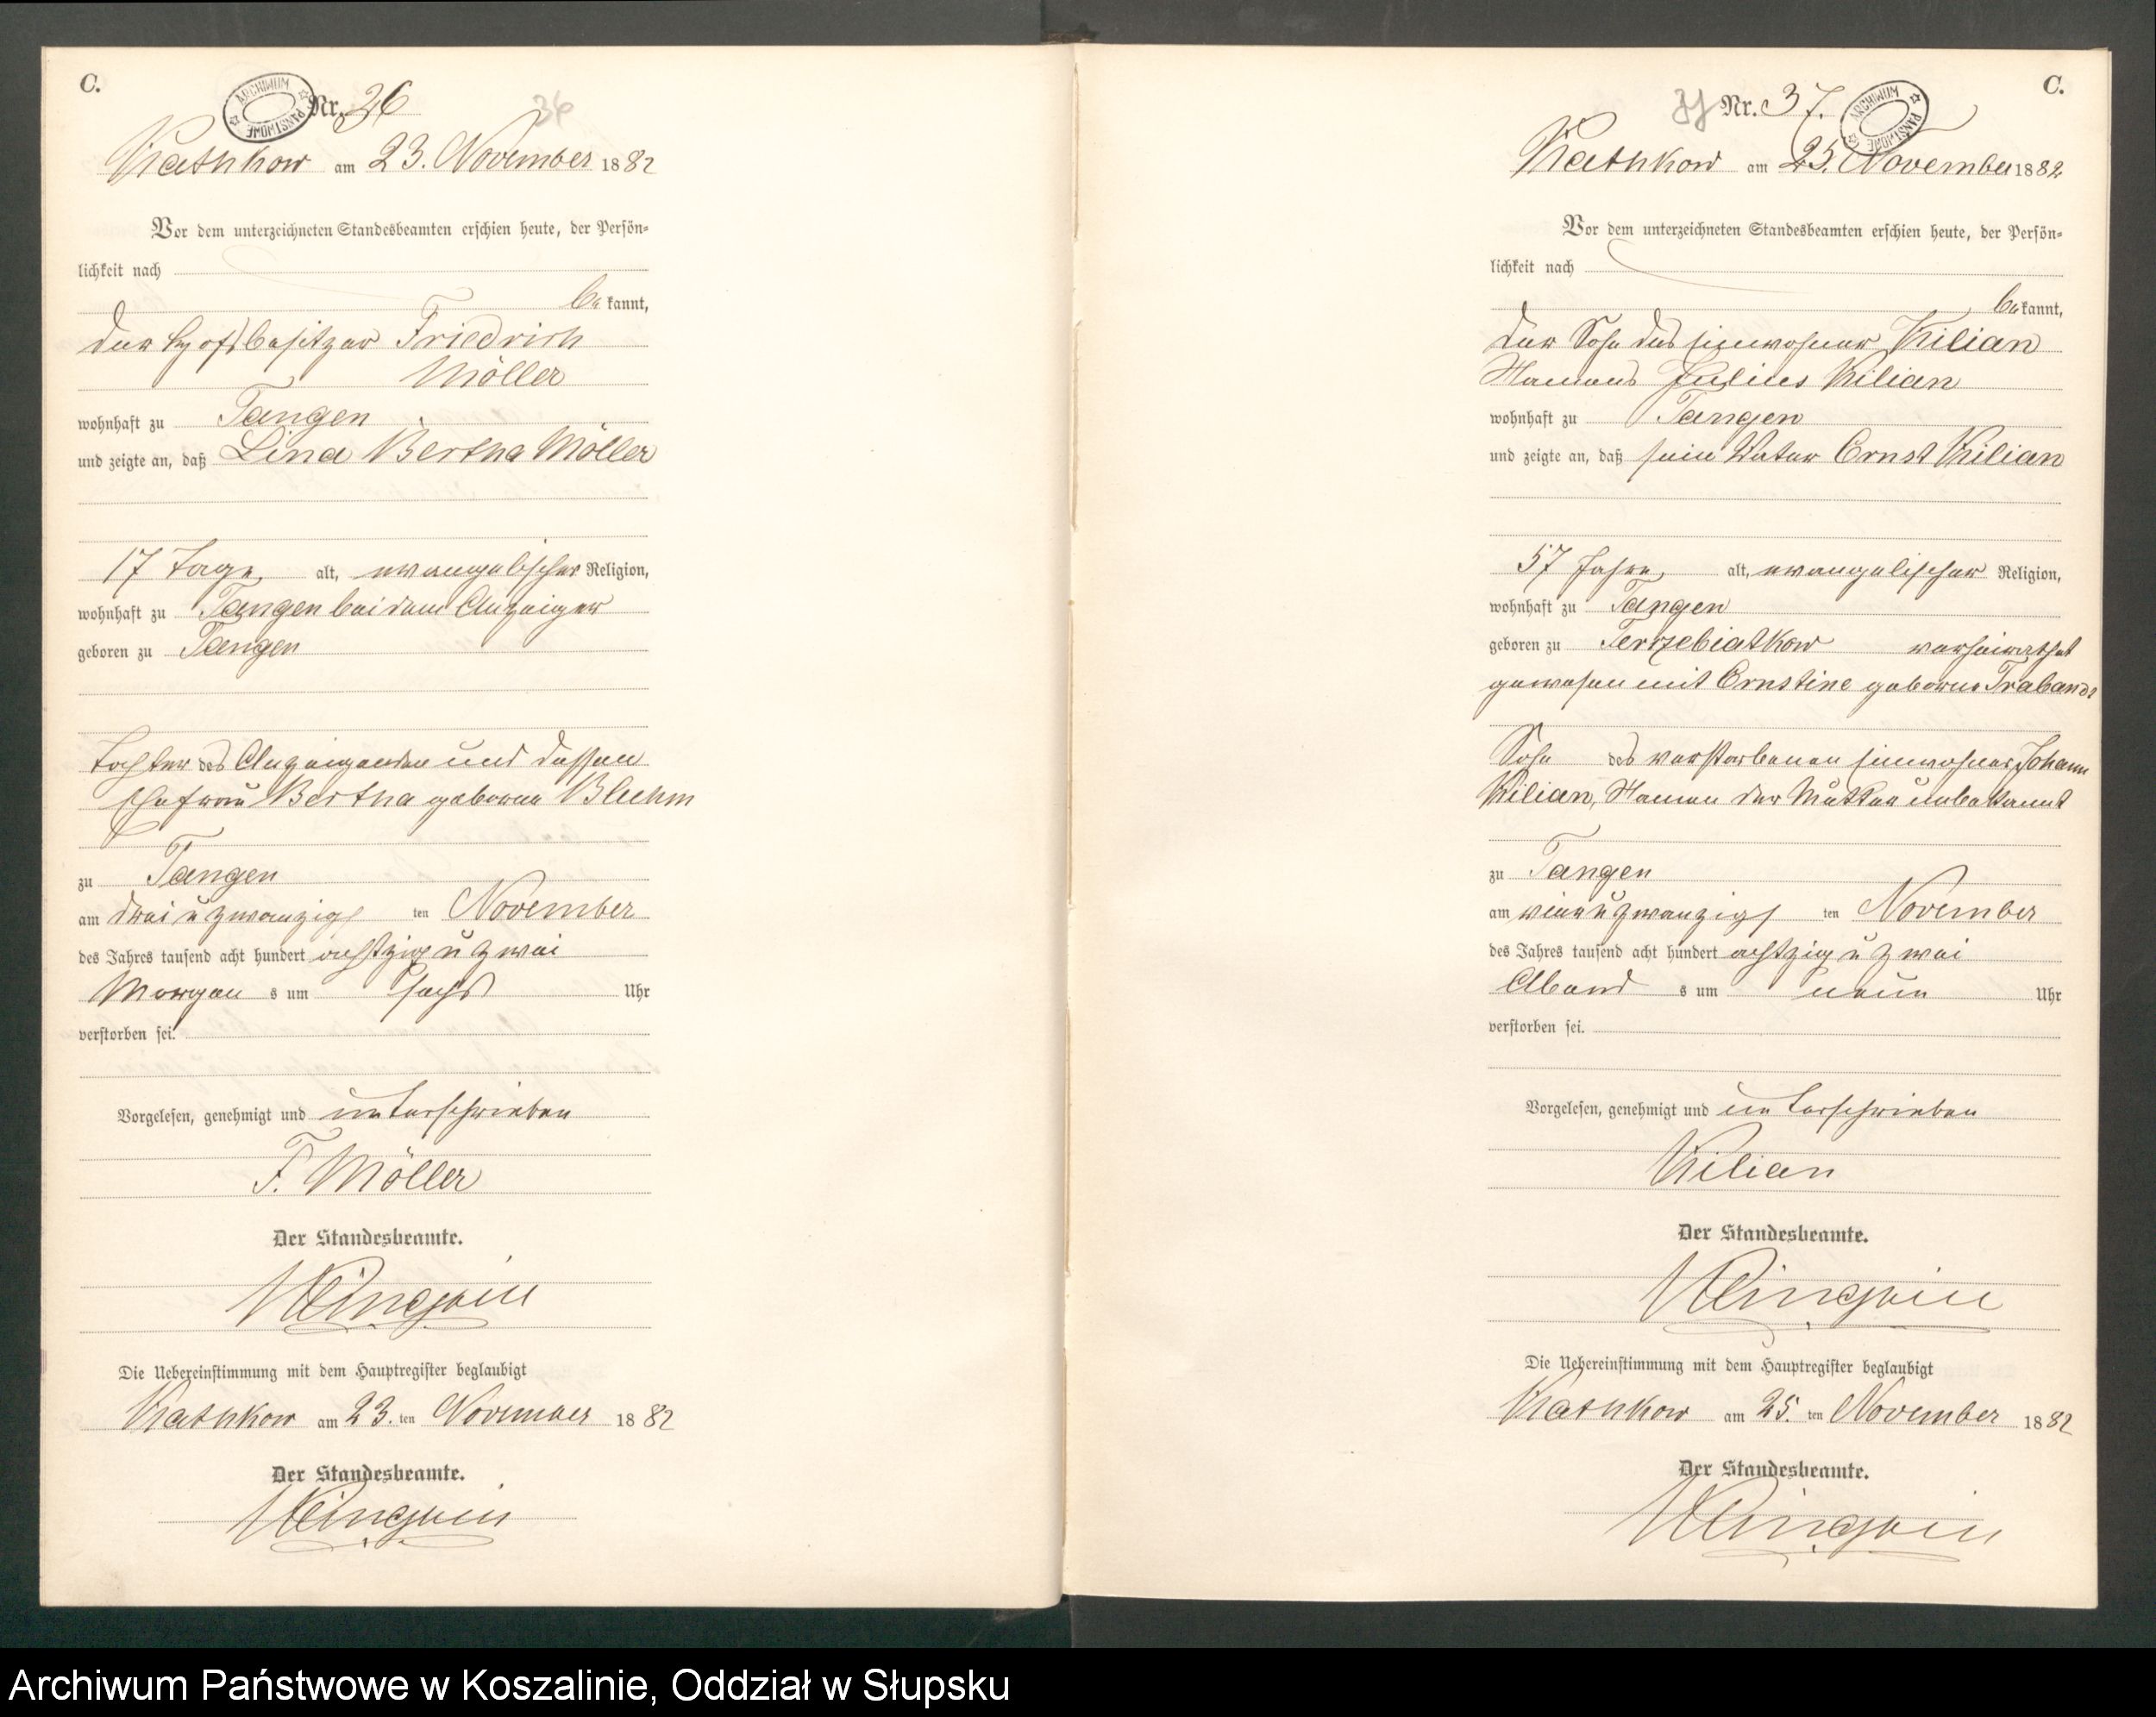 C.
ARCHIWUM PAŃSTWOWE
Nr. 36
36
Kathkow am 23. November 1882
Vor dem unterzeichneten Standesbeamten erschien heute, der Persön=
lichkeit nach
bekannt,
der Hofbesitzer Friedrich
Möller
wohnhaft zu Tangen
und zeigte an, daß Lina Bertha Möller
17 Tage alt, evangelischer Religion,
wohnhaft zu Tangen bei dem Anzeiger
geboren zu Tangen
Tochter des Anzeigenden und dessen
Ehefrau Bertha geborene Bluhm
zu Tangen
am drei u zwanzigs ten November
des Jahres tausend acht hundert achtzig u zwei
Morgens um sechs Uhr
verstorben sei.
Vorgelesen, genehmigt und unterschrieben
F. Möller
Der Standesbeamte.
Die Uebereinstimmung mit dem Hauptregister beglaubigt
Kathkow am 23. ten November 1882
Der Standesbeamte.
C.
37 Nr. 37.
ARCHIWUM PAŃSTWOWE
Kathkow am 25. November 1882
Vor dem unterzeichneten Standesbeamten erschien heute, der Persön=
lichkeit nach
bekannt,
der Sohn des Einwohner Kilian
Namens Julius Kilian
wohnhaft zu Tangen
und zeigte an, daß sein Vater Ernst Kilian
57 Jahre alt, evangelischer Religion,
wohnhaft zu Tangen
geboren zu Terrzebiatkow verheirathet
gewesen mit Ernstine geborne Trabandt
Sohn des verstorbenen Einwohner Johann
Kilian, Namen der Mutter unbekannt
zu Tangen
am vier u zwanzigs ten November
des Jahres tausend acht hundert achtzig u zwei
Abends um neun Uhr
verstorben sei.
Vorgelesen, genehmigt und unterschrieben
Kilian
Der Standesbeamte.
Die Uebereinstimmung mit dem Hauptregister beglaubigt
Kathkow am 25. ten November 1882
Der Standesbeamte.
Archiwum Państwowe w Koszalinie, Oddział w Słupsku